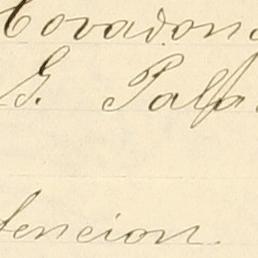 Covadon
G. Palf
tencion